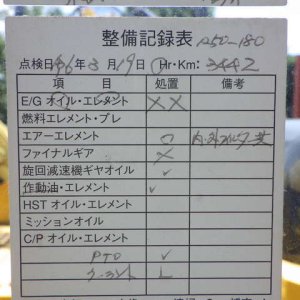 整備記録表 PC50-180
点検日 '16年3月19日 Hr・Km: 3442
項目 処置 備考
E/G オイル・エレメント ××
燃料エレメント・プレ
エアーエレメント ○
ファイナルギア ×
旋回減速機ギヤオイル ✓
作動油・エレメント ✓
HST オイル・エレメント
ミッションオイル
C/P オイル・エレメント
PTO ✓
クーラント